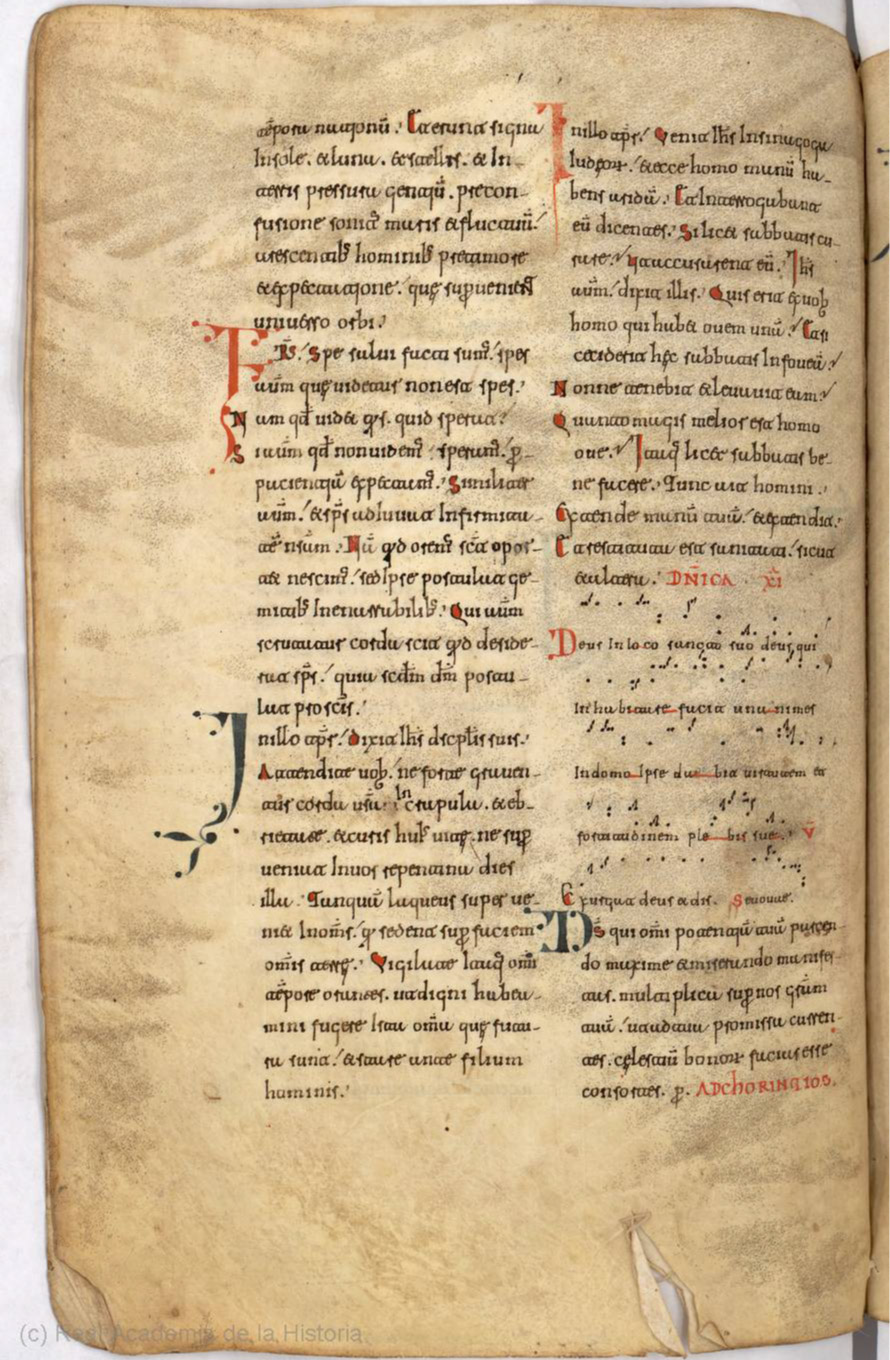 tēporū nationū. Et erunt signa
In sole. & luna. & stellis. & In
terris pressura gentiū. pre con
fusione sonit' maris & fluctuū.
arescentib' hominib' pre timore
& expectatione. quę sup uenient
uniuerso orbi.
FRS. Spe salui facti sum'. spes
autm̄ quę uidetur non est spes.
Nam qd̄ uidet q's. quid sperat?
Si autm̄ qd̄ non uidem' speram'. p
patientiā expectam'. Similiter
autm̄. & sp̄s adiuuat Infirmita
tē nr̄am. Nā qd orem' sc̄t opor
t& nescim'. sed Ipse postulat ge
mitib' Inenarrabilib'. Qui autm̄
scrutatur corda scit qd deside
rat sp̄s. quia scd̄m dm̄ postu
lat pro sc̄is.
Inillo tp̄r. dixit Ihs̄ dscplis suis.
Attendite uob. ne forte grauen
tur corda ur̄a In crapula. & eb
rietate. & curis hui' uitę. ne sup
ueniat In uos repentina dies
illa. Tanquā laqueus super ue
ni& In om̄s. q' sedent sup faciem
om̄is terrę. Vigilate Itaq' om̄i
tēpore orantes. ut digni habea
mini fugere Ista om̄a quę futu
ra sunt. & stare ante filium
hominis.
Inillo tp̄r. Venit Ihs̄ In sinagoga
Iudeor. & ecce homo manū ha
bens aridā. Et Interrogabant
eū dicentes. Si lic& sabbatis cu
rare. ut accusarent eū. Ihs̄
autm̄. dixit illis. Quis erit ex uob
homo qui hab& ouem unā. Et si
ceciderit hęc sabbatis In foueā.
Nonne tenebit & leuauit eam.
Quanto magis melior est homo
oue. Itaq' lic& sabbatis be
ne facere. Tunc ait homini.
Extende manū tuā. & extendit.
Et restituta est sanitati. sicut
& altera. DN̄ICA XI
Deus In loco sancto suo deus qui
Inhabitare facit unanimes
In domo Ipse dabit uirtutem et
fortitudinem plebis sue. V
Exurgat deus et dis. Seuouae.
Ds̄ qui om̄i potentiā tuā parcen
do maxime & miserando manifes
tas. multiplica sup nos gr̄am
tuā. ut ad tua promissa curren
tes. celestiū bonor facias esse
consortes. p. AD chORINTIOS.
(c) Real Academia de la Historia